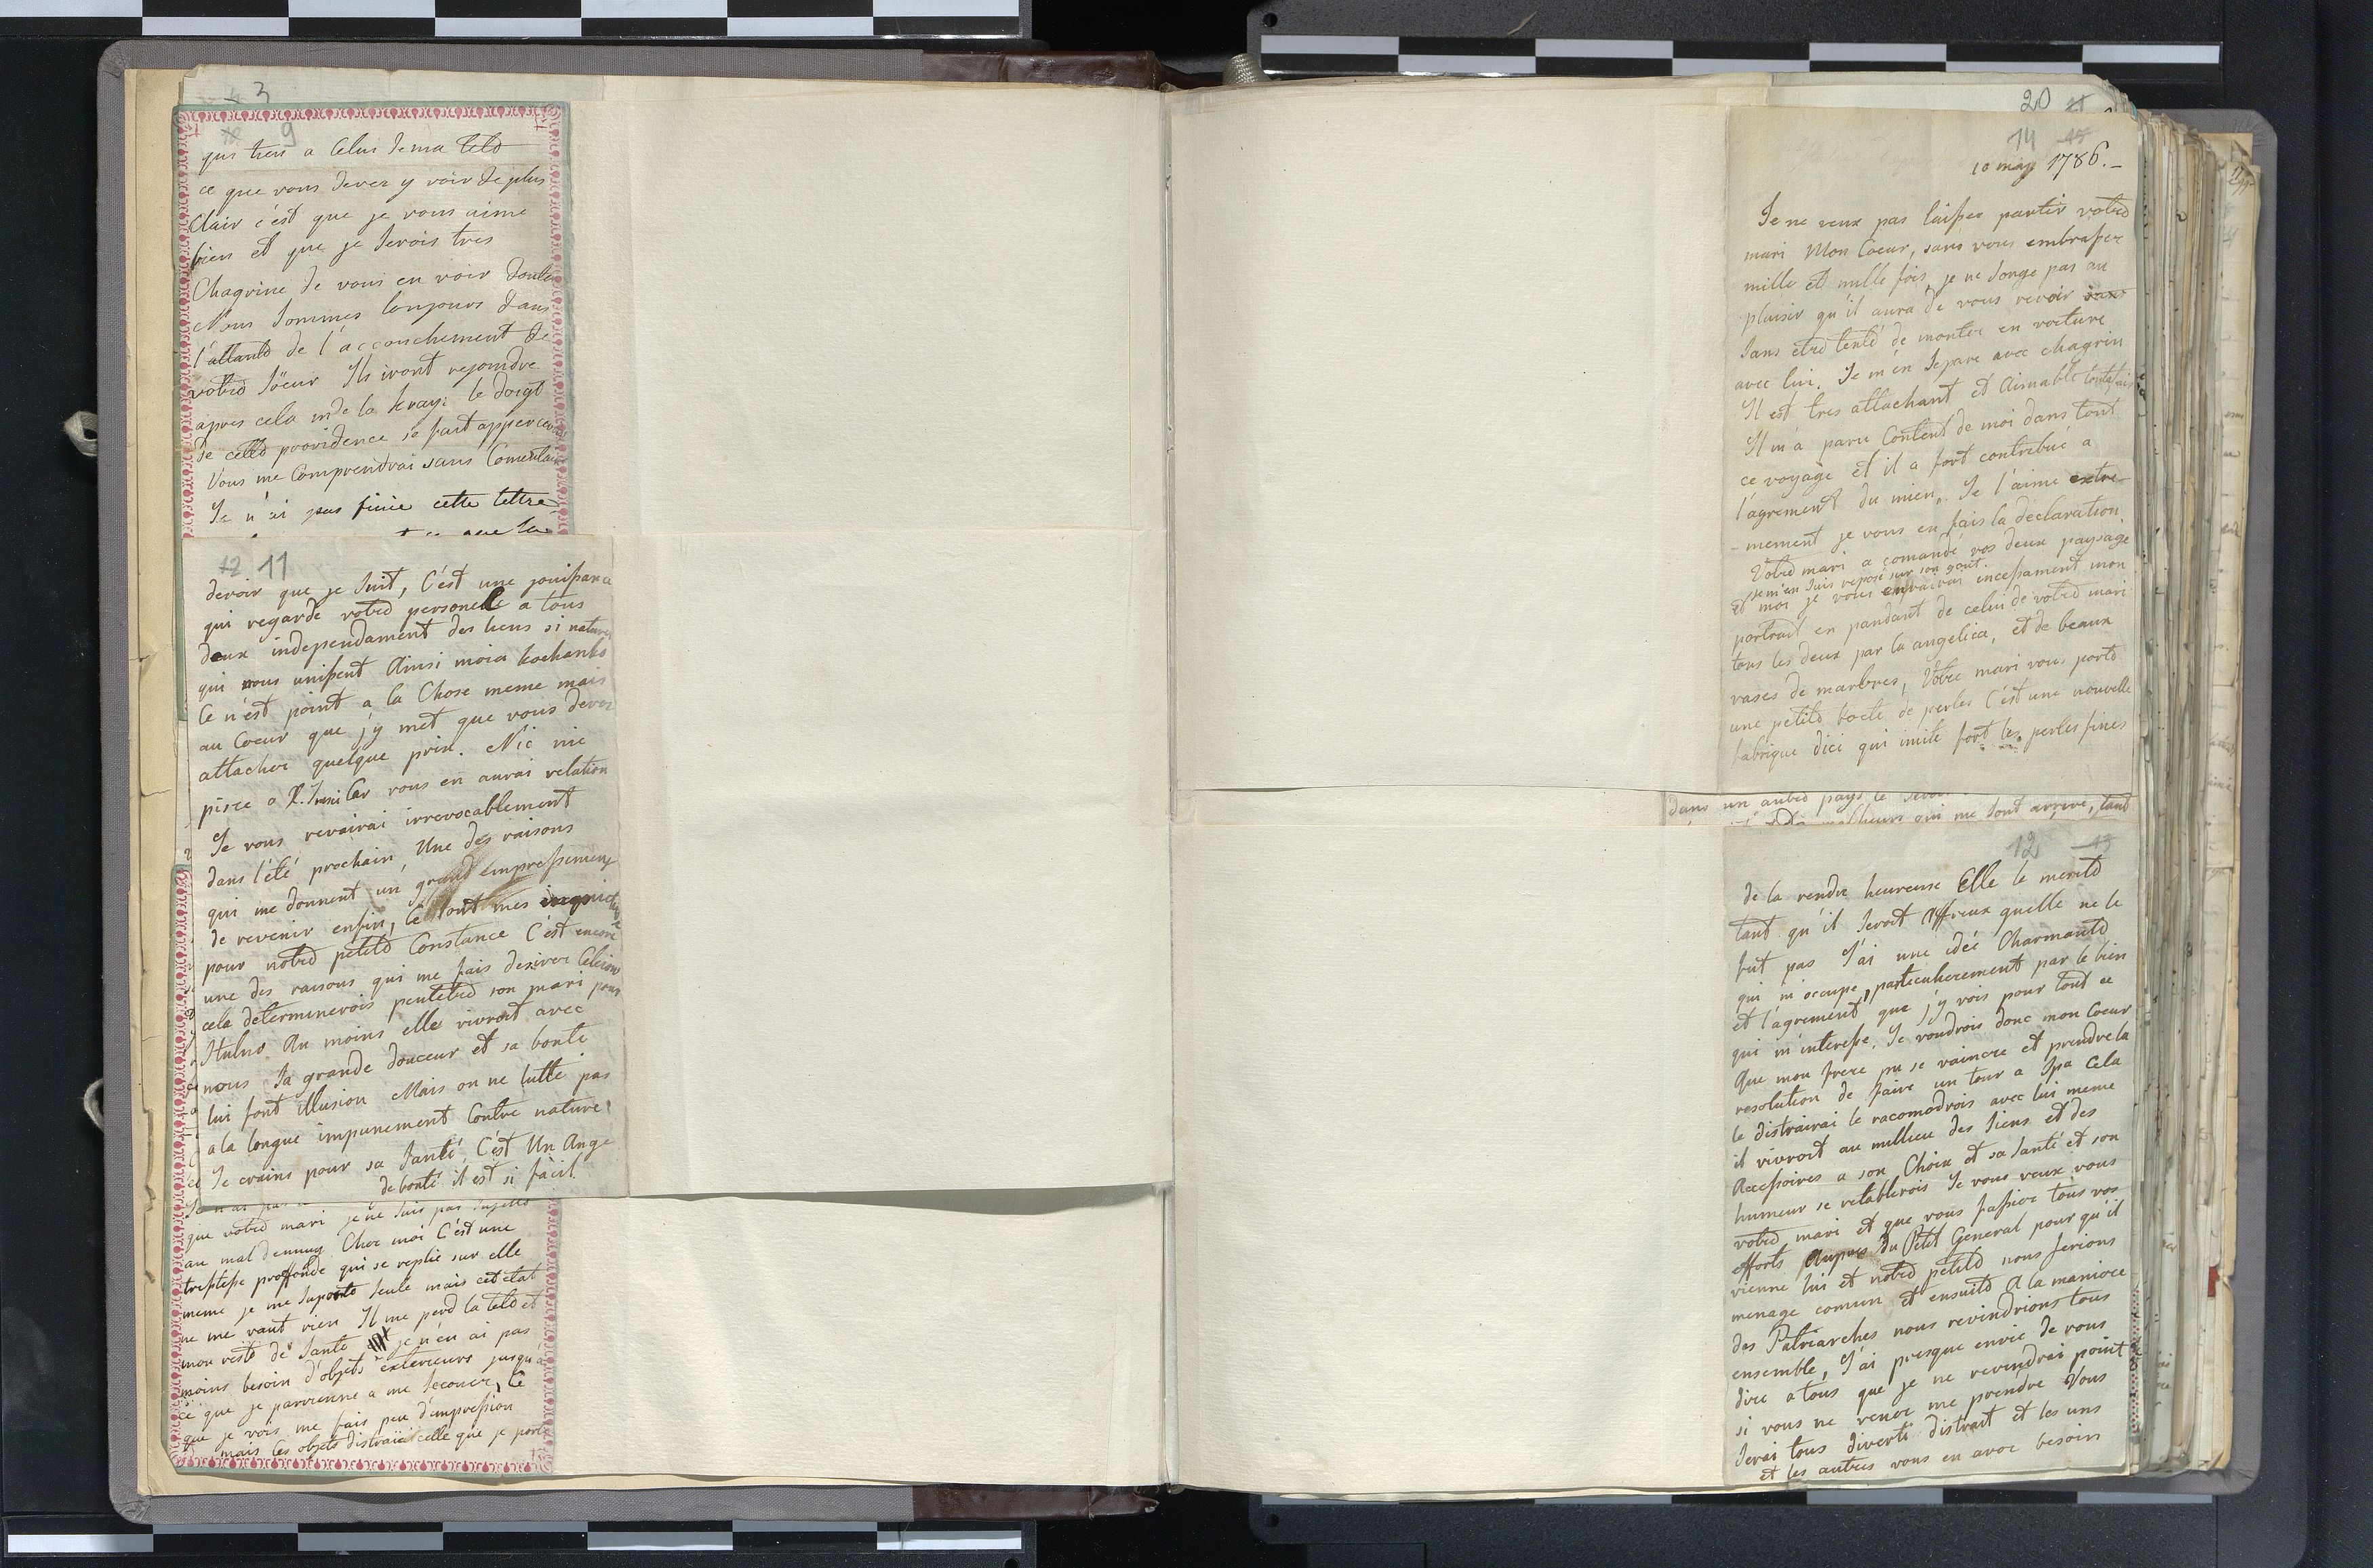 3
9
qui tien a celui de ma teste
ce que vous devez y voir de plus
Clair c'est que je vous aime
bien et que je serois tres
Chagrine de vous en voir douter
Nous sommes toujours dans
l'attante de l'accouchement de
votre Söeur Ils iront rejoindre
apres cela mde la kray: le doigt
de cette providence se fait appercevoir
Vous me Comprendrai sans Comentaire
Je n'ai pas finie cette lettre
que la
12 11
devoir que je suit, C'est une jouissance
qui regarde votre personelle a tous
deux independament des liens si naturel
qui nous unissent Ainsi moia kochanko
Ce n'est point a la Chose meme mais
au Coeur que j'y met que vous devez
attacher quelque prix. Nic nie
pisze o car vous en aurai relation
Je vous revairai irrevocablement
dans l'été prochain, Une des raisons
qui me donnent un grand empressement
de revenir enfin, ce sont mes inquietude
pour notre petite Constance C'est encore
une des raisons qui me fais desirer
cela determinerois peutetre son mari pour
Au moins elle vivroit avec
nous Sa grande douceur et sa bonte
lui font illusion Mais on ne lutte pas
a la longue impunement Contre nature
Je crains pour sa Santé, C'est Un Ange
de bonté il est si facil
Je n'ai pas
que votre mari je ne suis pas sujette
au mal dennuy Chez moi C'est une
tristesse proffonde qui se replie sur elle
meme je me suporte seule mais cet etat
ne me vaut rien Il me perd la tete et
mon reste de Sante je n'en ai pas
moins besoin d'objets exterieurs jusqu'a
ce que je parvienne a me secouer, Ce
que je vois me fais peu d'impression
mais les objets distraie celle que je porte
20
14 15
10 may 1786.-
Je ne veux pas laisser partir votre
mari Mon Coeur, sans vous embrasser
mille et mille fois, je ne songe pas au
plaisir qu'il aura de vous revoir sans
sans etre tenté de monter en voiture
avec lui. Je m'en separe avec chagrin
Il est tres attachant et Aimable toutefois
Il m'a paru Content de moi dans tout
ce voyage et il a fort contribué a
l'agrement du mien, Je l'aime extre-
-mement je vous en fais la declaration
Votre mari a comandé vos deux paysage
je m'en suis reposé sur son gout.
Et moi je vous envairai incessament mon
portrait en pandant de celui de votre mari
tous les deux par la angelica, et de beaux
vases de marbres, Votre mari vous porte
une petite boete de perles C'est une nouvelle
fabrique dici qui imite fort les perles fines
dans un autre pays le
malheurs qui me sont arrivé, tant
12 13
de la rendre heureuse Elle le merite
tant qu'il seroit Affreux quelle ne le
fut pas J'ai une idée Charmante
qui m'occupe, particulierement par le bien
et l'agrement que j'y vois pour tout ce
qui m'interesse, Je voudrois donc mon Coeur
Que mon frere pu se vaincre et prendre la
resolution de faire un tour a Spa Cela
le distrairai le racomodrois avec lui meme
il vivroit au millieu des siens et des
Accessoires a son Choix et sa Santé et son
humeur se retablirois Je vous veux vous
votre mari et que vous fassiez tous vos
efforts Aupres du Petit General pour qu'il
vienne lui et notre petite nous ferions
menage comun et ensuite a la maniere
des Patriarches nous revindrions tous
ensemble, J'ai presque envie de vous
dire a tous que je ne revindrai point
si vous ne venez me prendre Vous
Serai tous diverti distrait et les uns
et les autres vous en avez besoin